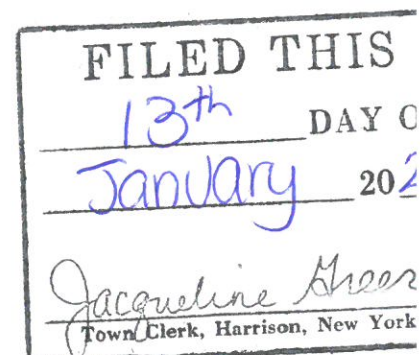 FILED THIS
13th DAY O
January 202
Jacqueline Greer
Town Clerk, Harrison, New York